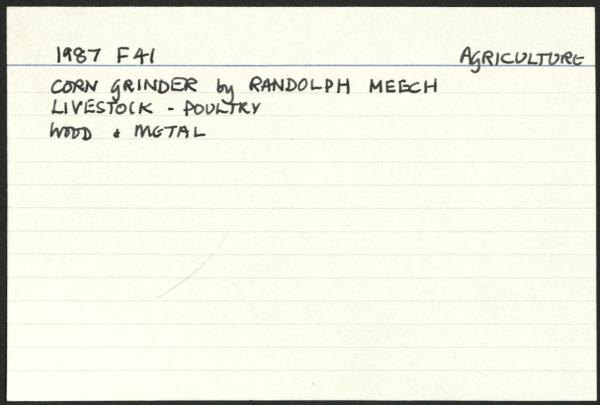 1987 F41 AGRICULTURE
CORN GRINDER by RANDOLPH MEECH
LIVESTOCK - POULTRY
WOOD & METAL